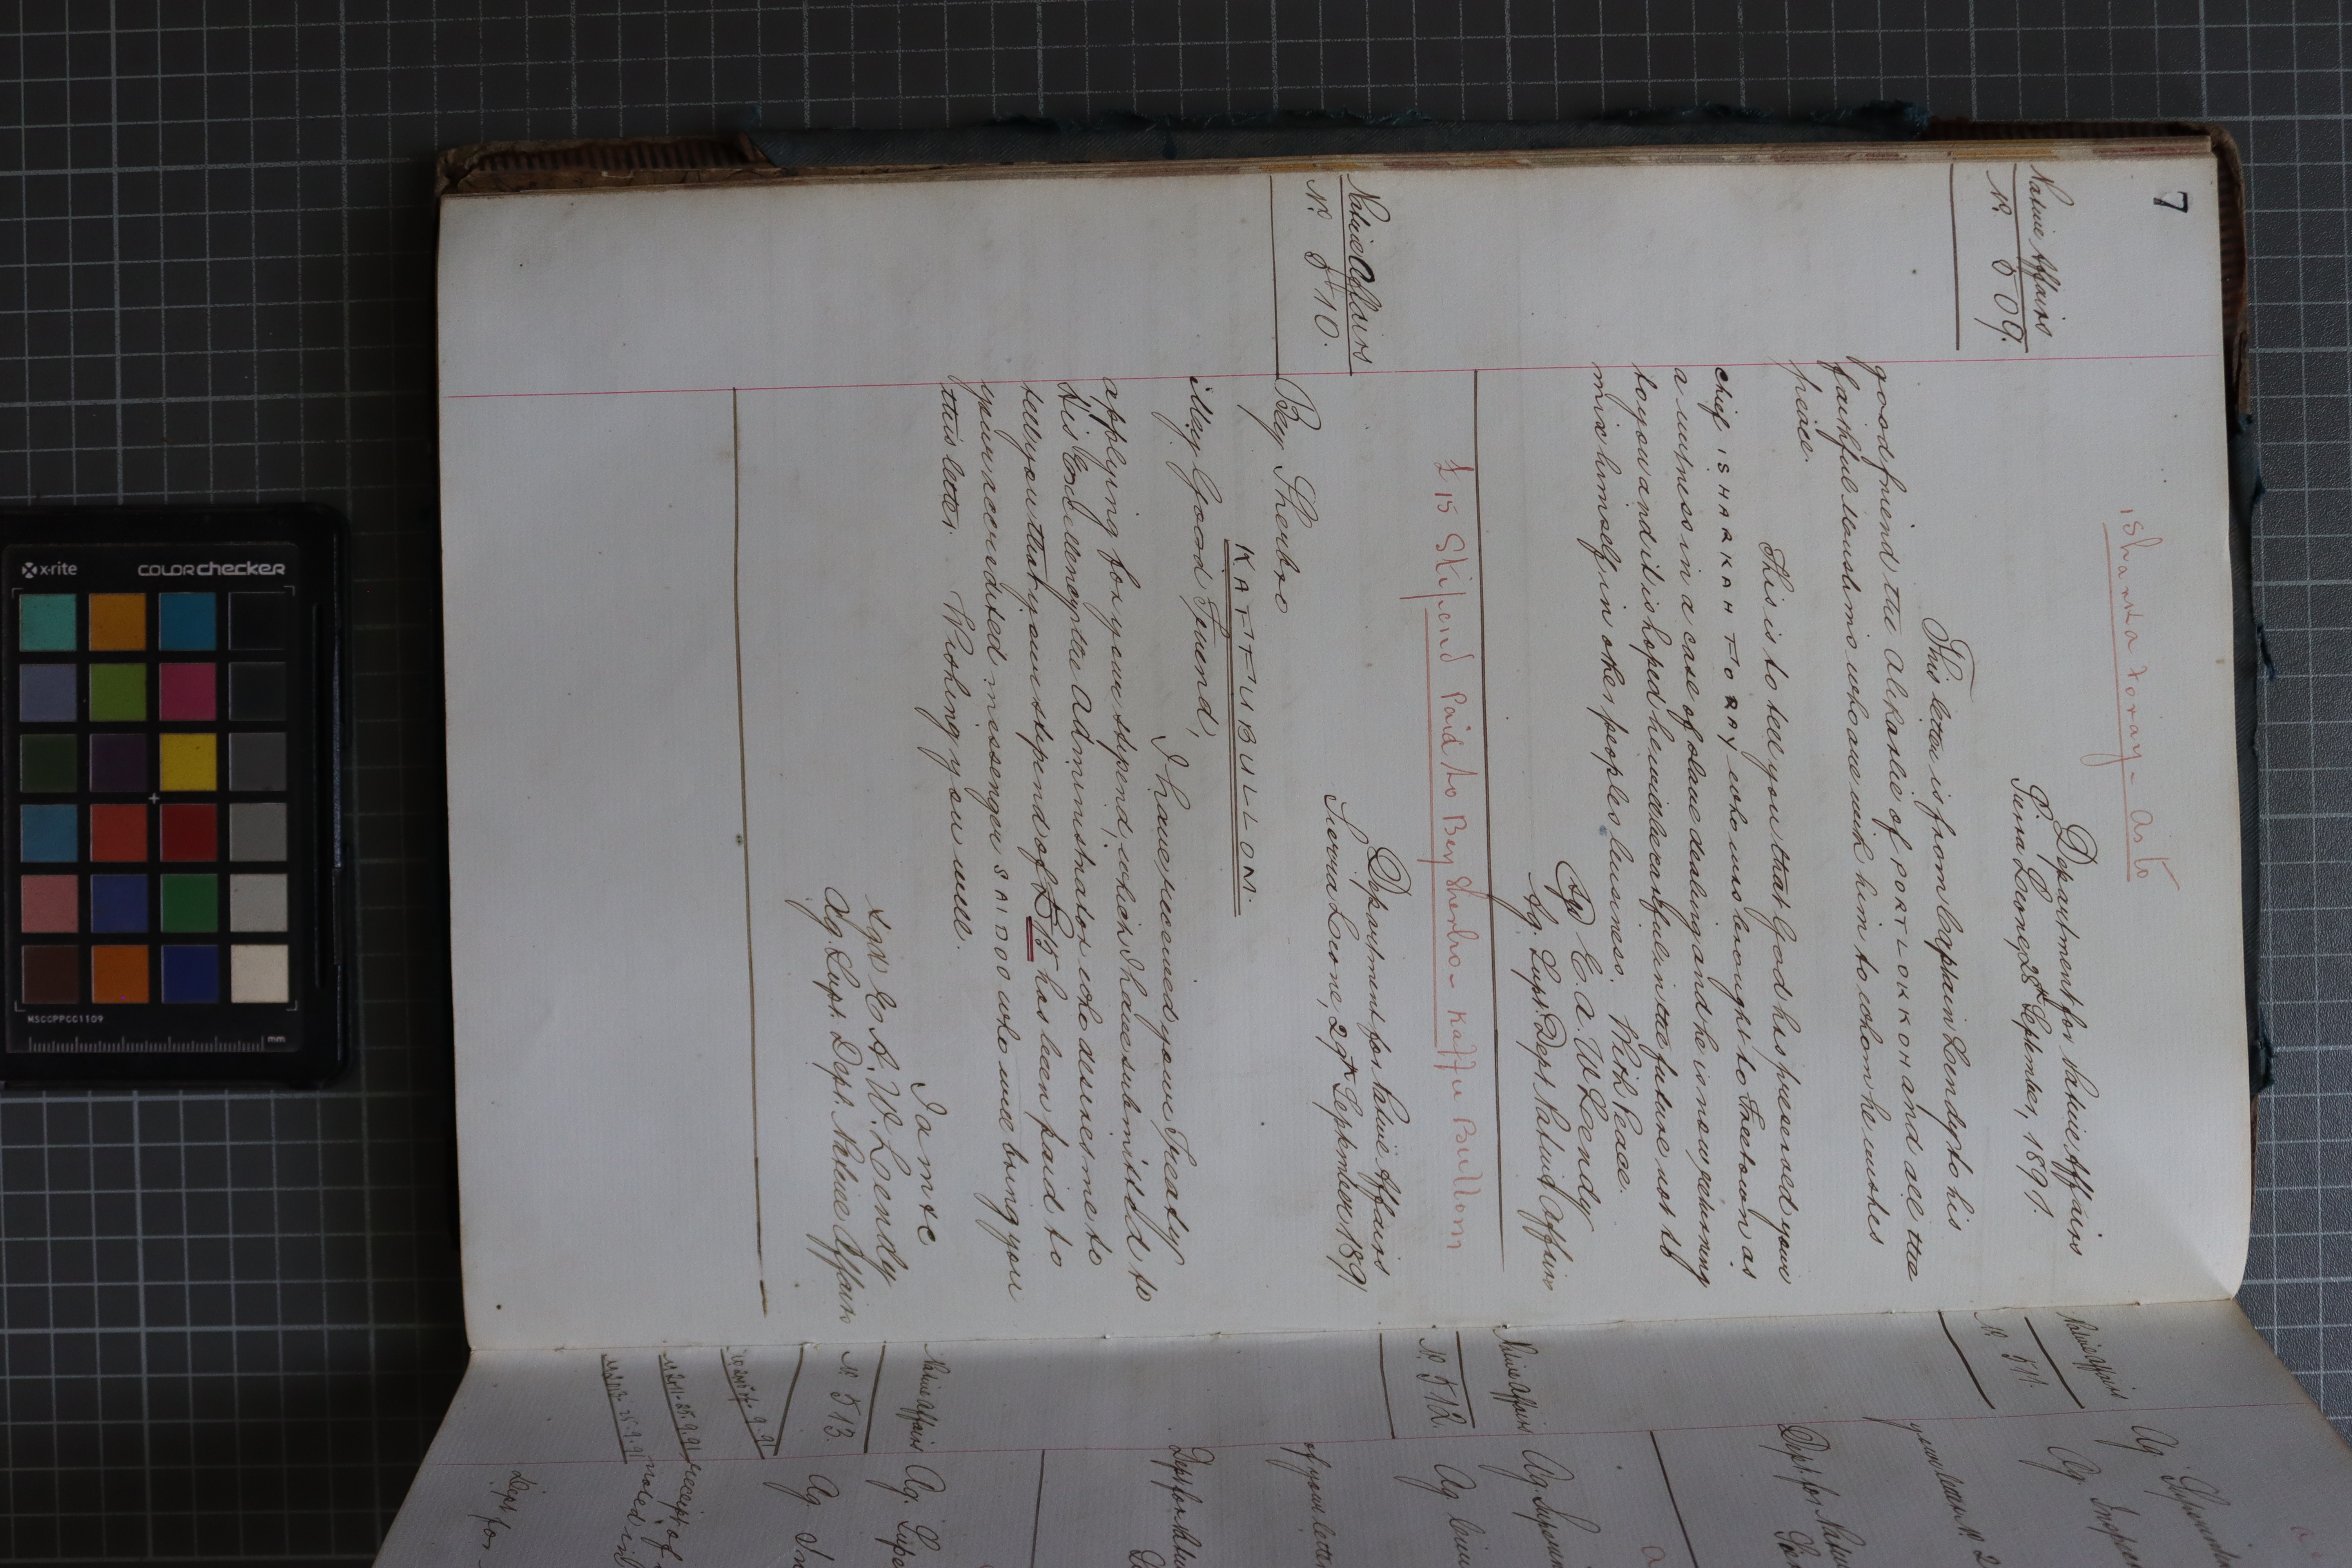 7
Isharka toray - as to
Native Affairs
No. 509.
Department for Native Affairs
Sierra Leone, 28th September, 1891.
This letter is from Captain Lendy to his
good friend the Alikarlie of PORT LOKKOH and all the
faithful Muslims who are with him to whom he wishes
peace.
This is to tell you that God has preserved your
chief ISHARKAH TORAY who was brought to Freetown as
a witness in a case of slave dealing and he is now returning
to you and it is hoped he will be careful in the future not to
mix himself in other peoples business. With Peace.
E. A. W. Lendy
Ag. Supt. Dept. Native Affairs
£15 Stipend Paid to Bey Sherbro - Kaffu Bullom
Native Affairs
No. 510.
Department for Native Affairs
Sierra Leone, 29th September 1891
Bey Sherbro
KAFFU BULLOM.
My Good Friend,
I have received your Treaty
applying for your stipend, which I have submitted to
His Excellency the Administrator who desires me to
tell you that your stipend of £15 has been paid to
your accredited messenger SAIDOO who will bring you
this letter. Wishing you well.
I am &c
Sgd E. A. W. Lendy
Ag. Supt. Dept. Native Affairs
Native Affairs
No. 511.
Ag. Superinten
Ag. Inspe
your letter No. 2
Dept. for Nativ
Native Affairs
No. 512.
Ag. Superin
Ag
of your letter
Dept for Nativ
Native Affairs
No. 513.
Ag. Supe
Ag. In
receipt of
noted in
Dept for
x-rite
COLORchecker
MSCCPPCC1109
mm